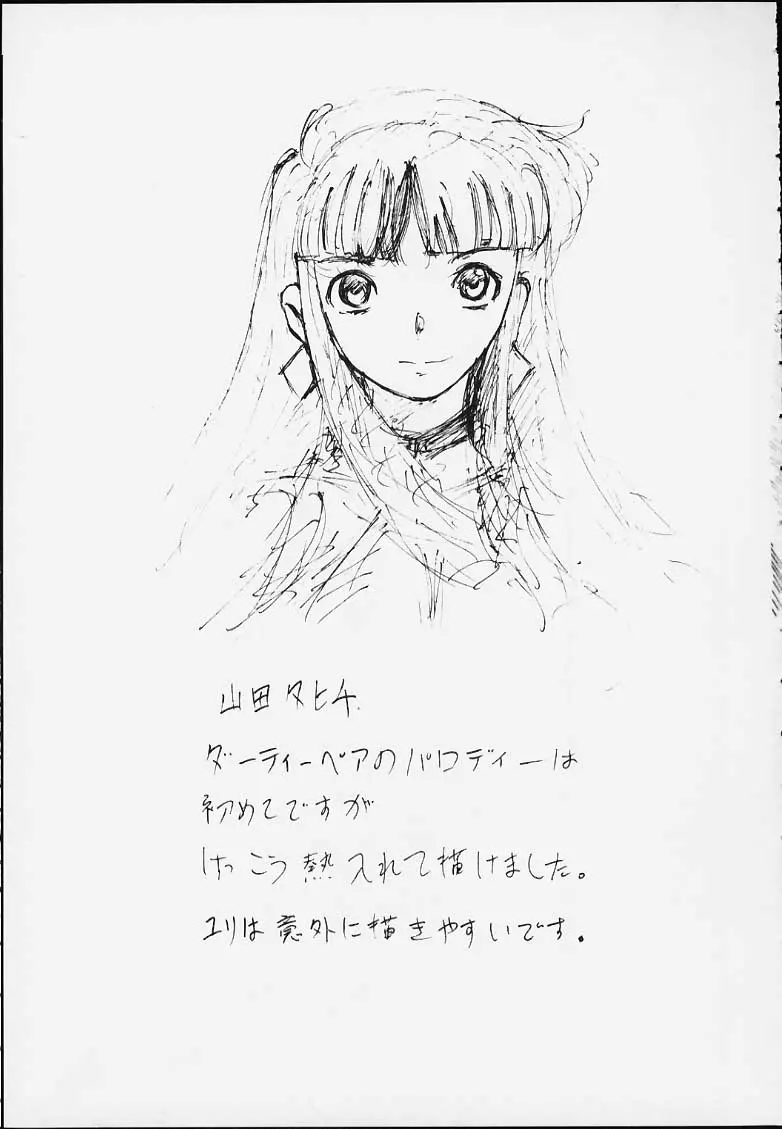 山田タヒチ.
ダーティーペアのパロディーは
初めてですが
けっこう熱入れて描けました。
ユリは意外に描きやすいです。